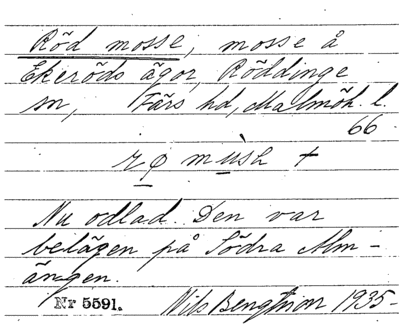 Röd mosse, mosse å
Ekeröds ägor, Röddinge
sn, Färs hd, Malmöh. l.
66
Nu odlad. Den var
belägen på Södra Alm-
ängen.
Nr 5591. Nils Bengtsson 1935-